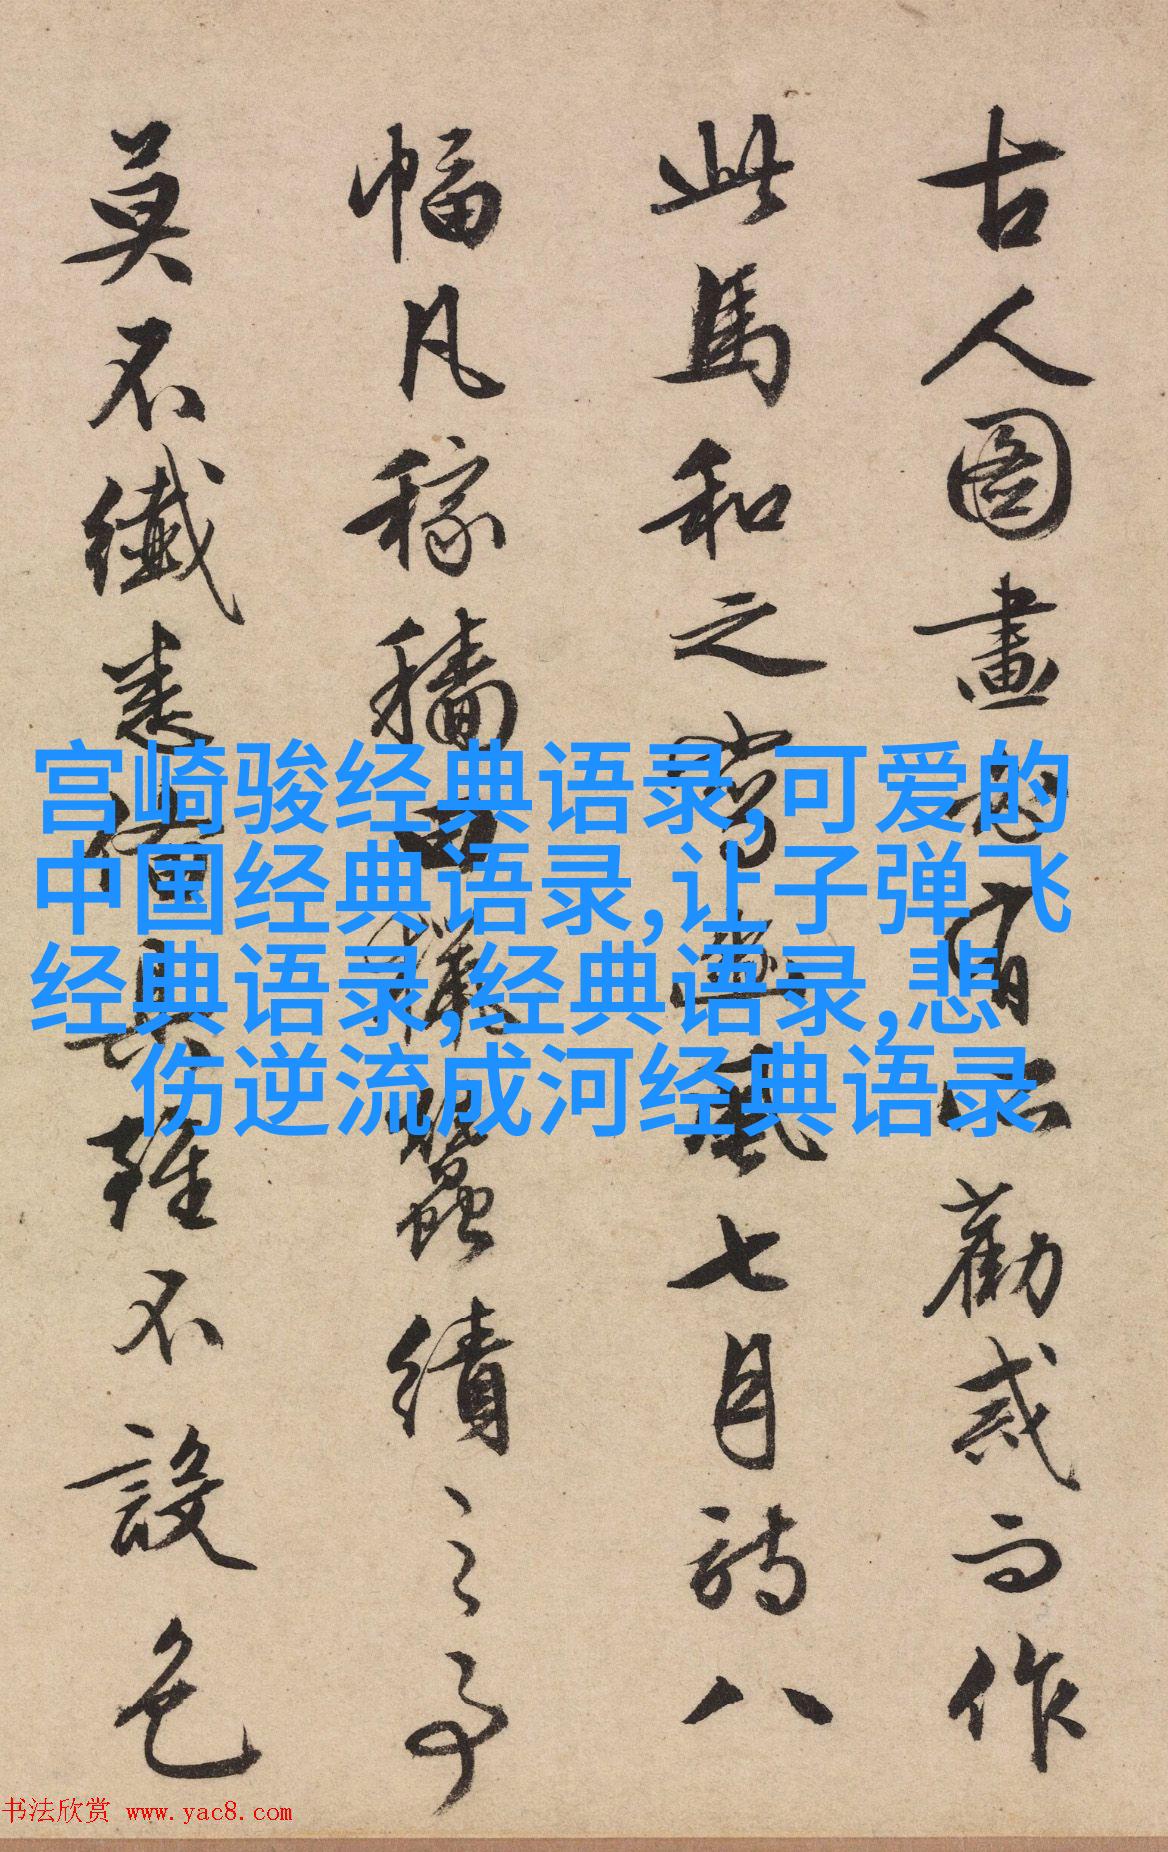 古人圖畫必有所勸戒而作
此馬和之風七月詩八
幅凡稼穡田獵蠶績之事
莫不纖悉備具雖不設色
宫崎骏经典语录,可爱的
中国经典语录,让子弹飞
经典语录,经典语录,悲
伤逆流成河经典语录
书法欣赏 www.yac8.com